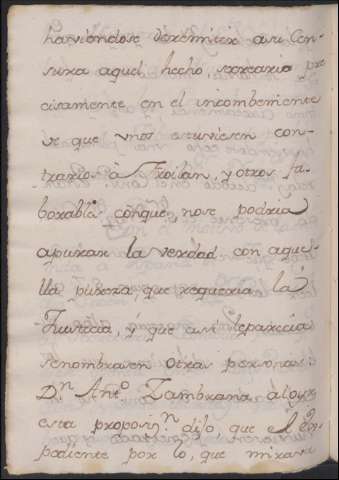 haviendose deremitir asu Cen-
sura aquel hecho, secaria pre
cisamente en el incombeniente
de que vnos estuviesen con-
trarios à Froilàn, y otros fa-
borables conque, nose podria
apurar la verdad con aque-
lla pureza, que requeria la
Justicia, y que asi leparecia
senombrasen otras personas.
D.ⁿ Ant.º Zambrana àloyr
esta propos.ⁿ dijo, que el Ex-
pediente por lo, que mirava